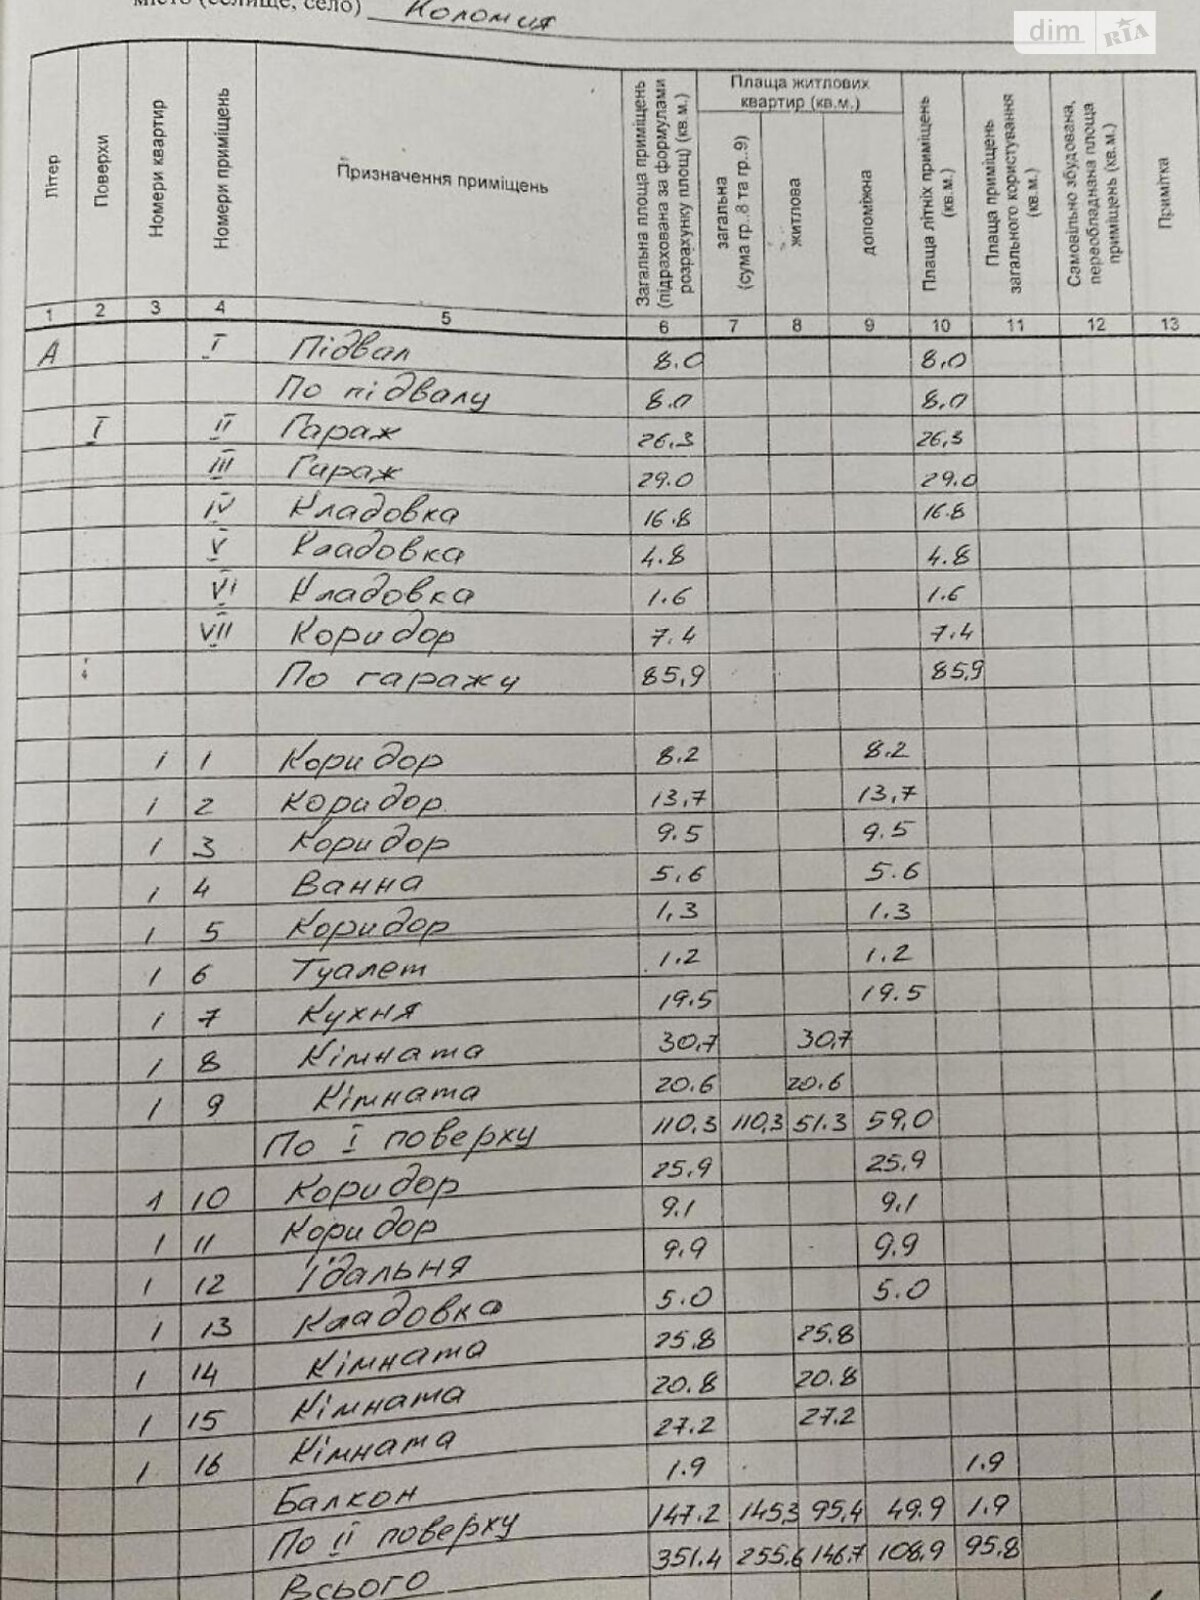 місто (селище, село) Коломия
dim RIA
Літер
Поверхи
Номери квартир
Номери приміщень
Призначення приміщень
Загальна площа приміщень (підрахована за формулами розрахунку площ) (кв.м.)
Плаща житлових квартир (кв.м.)
загальна (сума гр..8 та гр..9)
житлова
допоміжна
Плаща літніх приміщень (кв.м.)
Плаща приміщень загального користування (кв.м.)
Самовільно збудована, переобладнана площа приміщень (кв.м.)
Примітка
1 2 3 4 5 6 7 8 9 10 11 12 13
А I Підвал 8.0 8,0
По підвалу 8.0 8,0
I II Гараж 26,3 26,3
III Гараж 29.0 29.0
IV Кладовка 16.8 16.8
V Кладовка 4.8 4.8
VI Кладовка 1.6 1.6
VII Коридор 7.4 7.4
По гаражу 85,9 85,9
1 1 Коридор 8.2 8.2
1 2 Коридор 13,7 13,7
1 3 Коридор 9.5 9.5
1 4 Ванна 5.6 5.6
1 5 Коридор 1,3 1.3
1 6 Туалет 1.2 1.2
1 7 Кухня 19.5 19.5
1 8 Кімната 30,7 30,7
1 9 Кімната 20.6 20.6
По I поверху 110.3 110,3 51.3 59,0
1 10 Коридор 25.9 25,9
1 11 Коридор 9.1 9.1
1 12 Їдальня 9.9 9.9
1 13 Кладовка 5.0 5.0
1 14 Кімната 25.8 25.8
1 15 Кімната 20.8 20.8
1 16 Кімната 27.2 27.2
Балкон 1.9 1.9
По II поверху 147.2 145,3 95,4 49.9 1.9
Всього 351.4 255.6 146.7 108,9 95.8